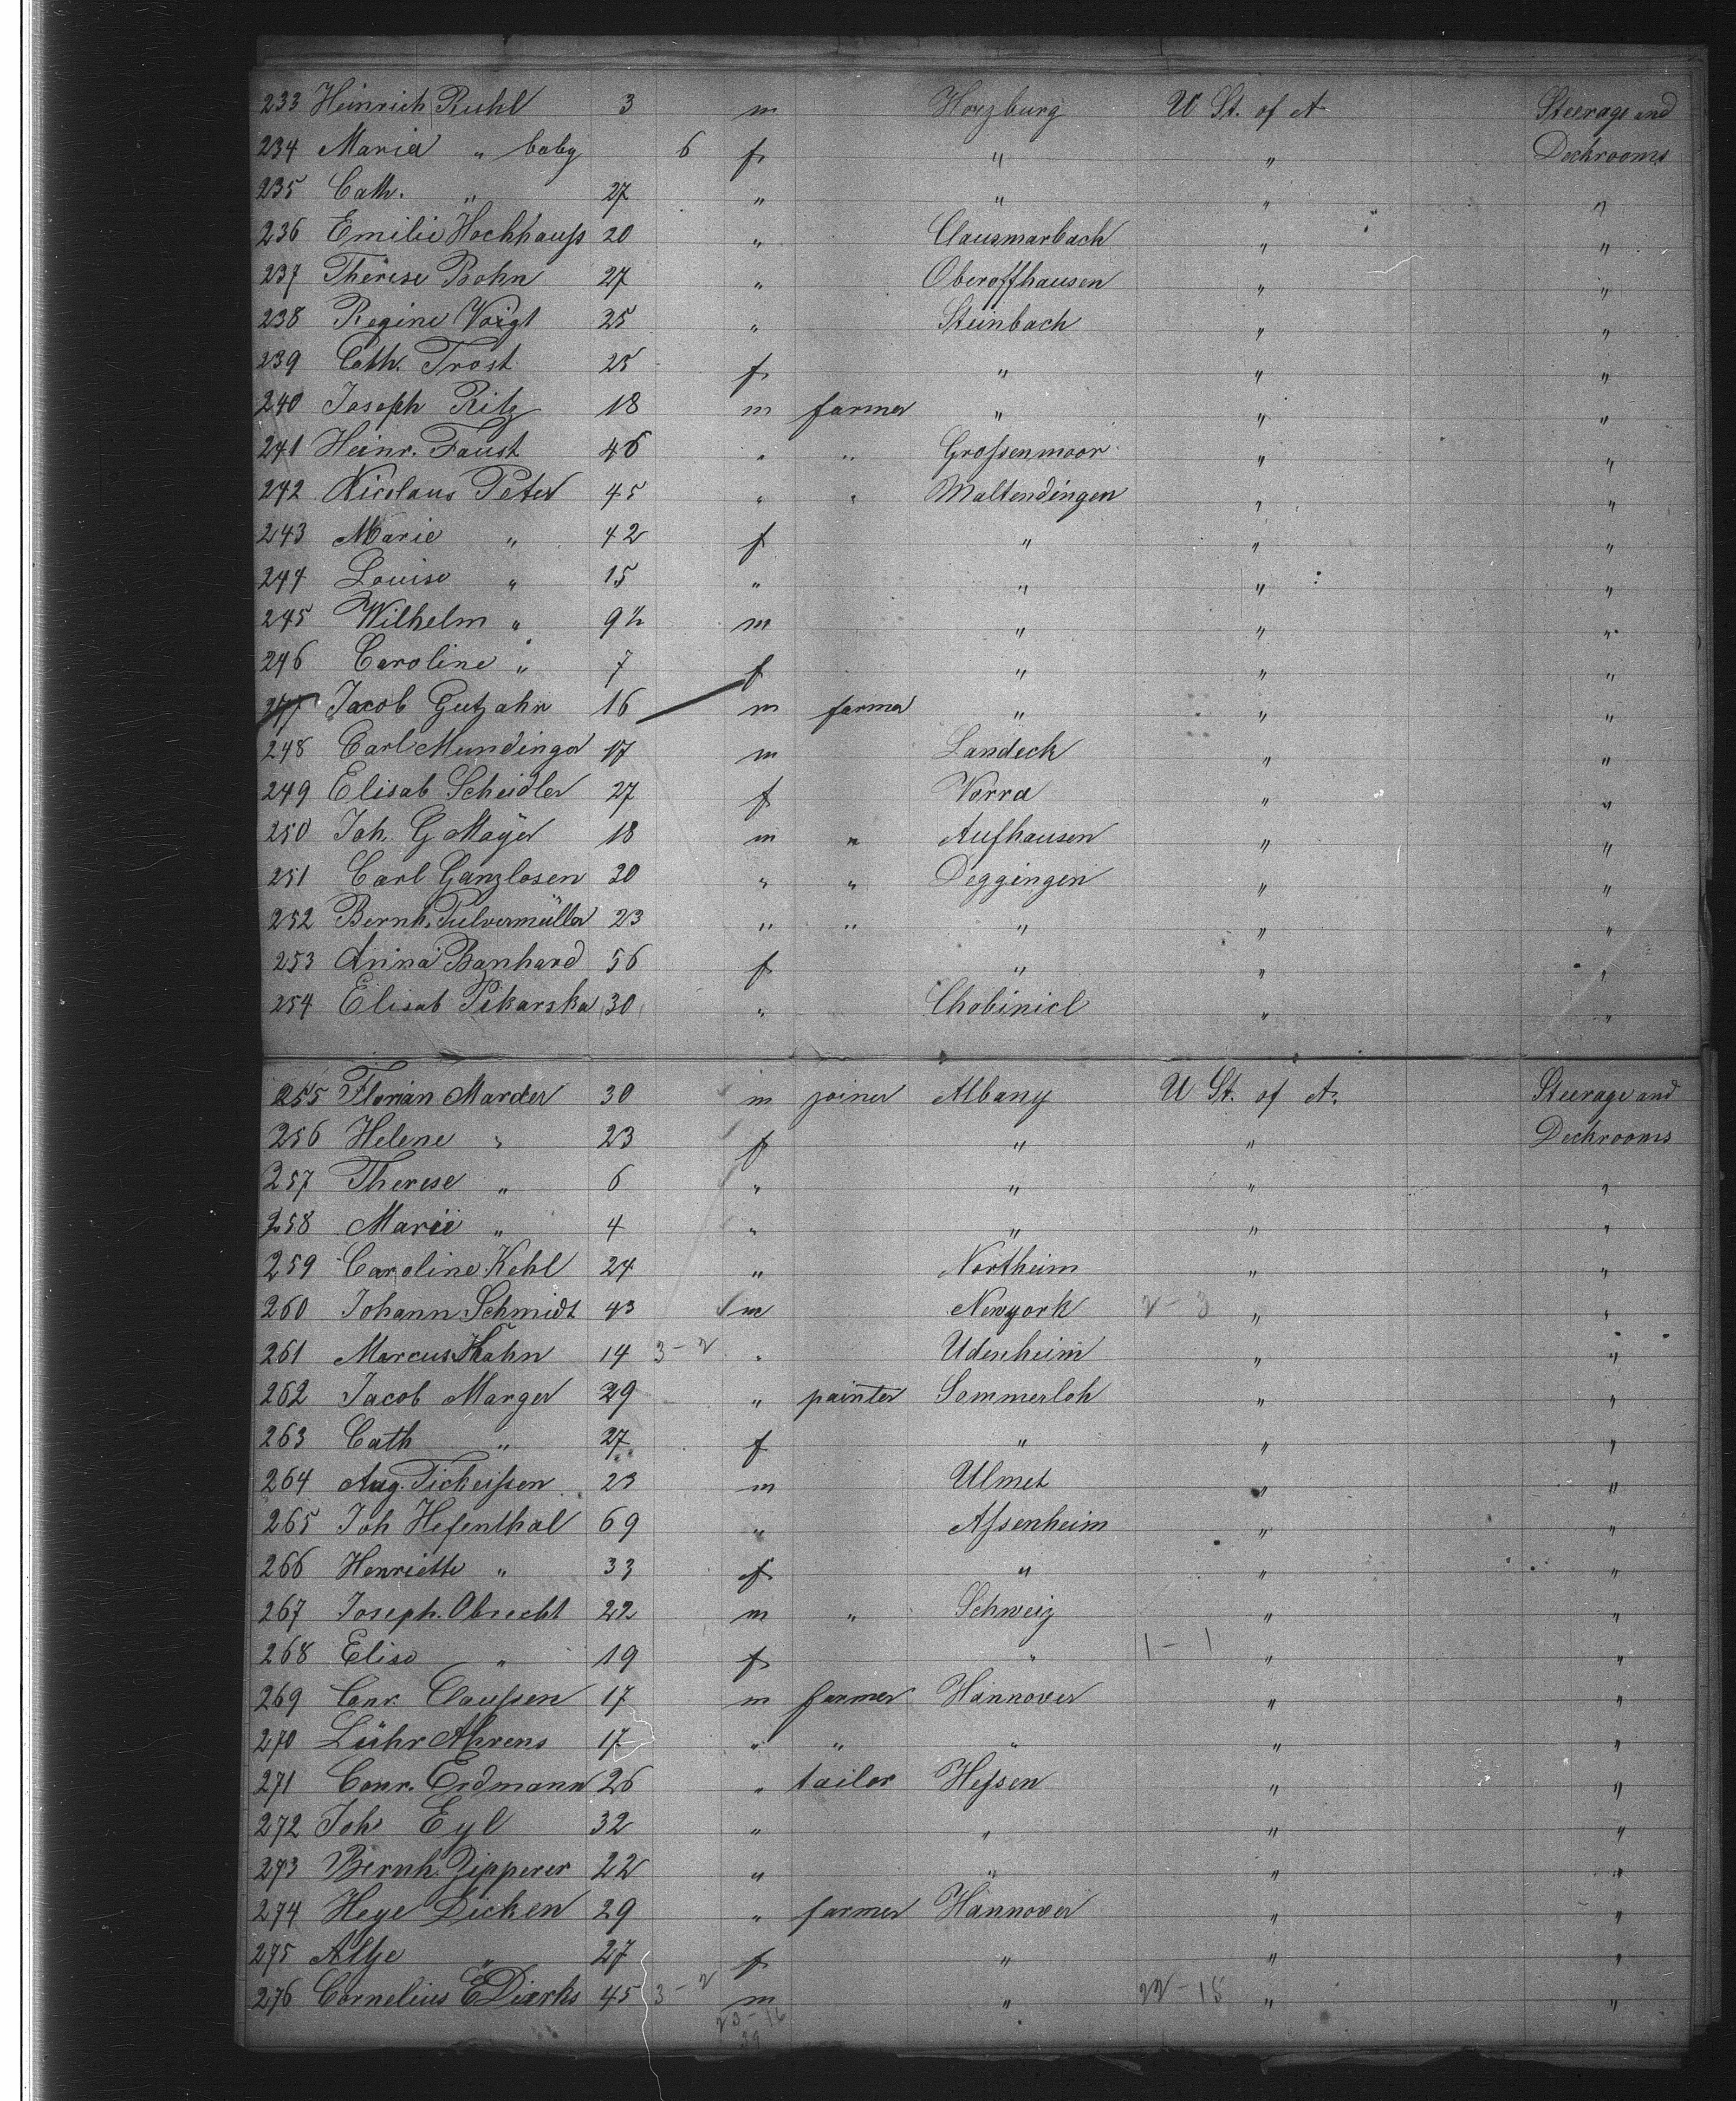 233 Heinrich Ruhl 3 m Horzburg U St. of A Steerage and
234 Maria " baby 6 f " " Deckrooms
235 Cath. " 27 " " " "
236 Emilie Hochhauß 20 " Clausmarbach " "
237 Therese Bohn 27 " Oberoffhausen " "
238 Regine Voigt 25 " Steinbach " "
239 Cath. Trost 25 f " " "
240 Joseph Ritz 18 m farmer " " "
241 Heinr. Faust 46 " " Großenmoor " "
242 Nicolaus Peter 45 " " Maltendingen " "
243 Marie " 42 f " " "
244 Louise " 15 " " " "
245 Wilhelm " 9½ m " " "
246 Caroline " 7 f " " "
247 Jacob Gutjahr 16 m farmer " " "
248 Carl Mundinger 17 m Landeck " "
249 Elisab Scheidler 27 f Vorra " "
250 Joh. G Mayer 18 m " Aufhausen " "
251 Carl Ganzlosen 30 " " Deggingen " "
252 Bernh. Pulvermüller 23 " " " " "
253 Anna Banhard 56 f " " "
254 Elisab Pikarska 30 " Chobinicl " "
255 Florian Marder 30 m joiner Albany U St. of A. Steerage and
256 Helene " 23 f " " Deckrooms
257 Therese " 6 " " " "
258 Marie " 4 " " " "
259 Caroline Kehl 24 " Northeim " "
260 Johann Schmidt 43 m Newyork 2-3 " "
261 Marcus Kahn 14 3-2 " Udenheim " "
262 Jacob Marger 29 " painter Sommerloh " "
263 Cath " 27 f " " "
264 Aug. Tickeißen 23 m Ulmet " "
265 Joh Hefenthal 69 " Aßenheim " "
266 Henriette " 33 f " " "
267 Joseph Obrecht 22 m " Schweiz " "
268 Elise " 19 f " 1-1 " "
269 Conr. Claußen 17 m farmer Hannover " "
270 Lühr Ahrens 17 " " " " "
271 Conr. Erdmann 26 " tailor Heßen " "
272 Joh Eyl 32 " " " "
273 Bernh. Zipperer 22 " " " "
274 Heye Dicken 29 " farmer Hannover " "
275 Altje " 27 f " " "
276 Cornelius E Dierks 45 3-2 m " 22-15 " "
23-16
39